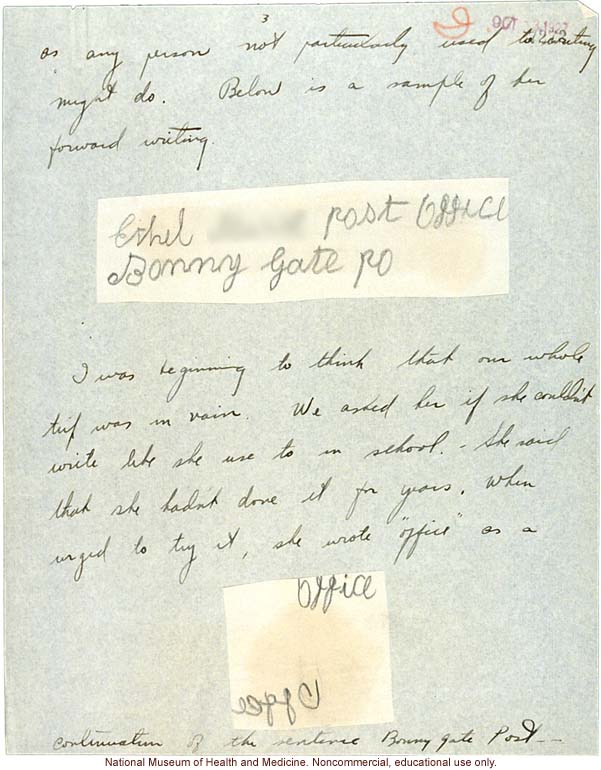 3
OCT
as any person not particularly used to writing
might do. Below is a sample of her
forward writing.
Ethel post office
Bonny Gate PO
I was beginning to think that our whole
trip was in vain. We asked her if she couldn't
write like she use to in school. - She said
that she hadn't done it for years. When
urged to try it, she wrote "office" as a
office
office
continuation of the sentence Bonny gate Post -
National Museum of Health and Medicine. Noncommercial, educational use only.